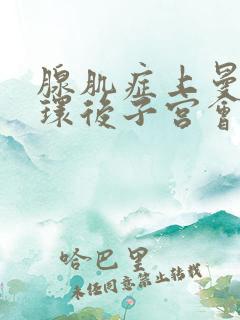 腺肌症上曼
環後子宮會
哈巴里
未经同意禁止转载